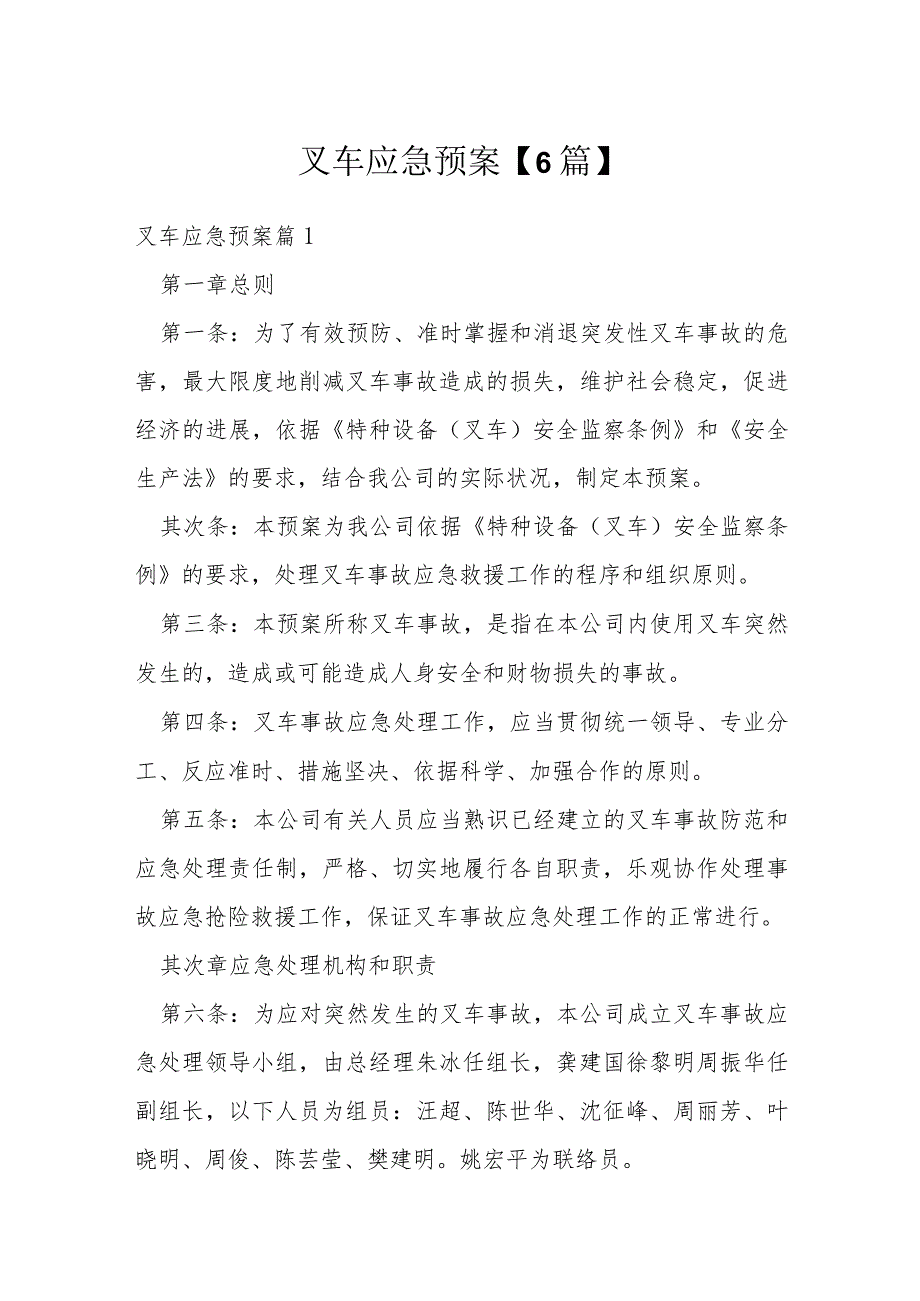 叉车应急预案【6篇】
叉车应急预案篇1
第一章总则
第一条：为了有效预防、准时掌握和消退突发性叉车事故的危
害，最大限度地削减叉车事故造成的损失，维护社会稳定，促进
经济的进展，依据《特种设备（叉车）安全监察条例》和《安全
生产法》的要求，结合我公司的实际状况，制定本预案。
其次条：本预案为我公司依据《特种设备（叉车）安全监察条
例》的要求，处理叉车事故应急救援工作的程序和组织原则。
第三条：本预案所称叉车事故，是指在本公司内使用叉车突然
发生的，造成或可能造成人身安全和财物损失的事故。
第四条：叉车事故应急处理工作，应当贯彻统一领导、专业分
工、反应准时、措施坚决、依据科学、加强合作的原则。
第五条：本公司有关人员应当熟识已经建立的叉车事故防范和
应急处理责任制，严格、切实地履行各自职责，乐观协作处理事
故应急抢险救援工作，保证叉车事故应急处理工作的正常进行。
其次章应急处理机构和职责
第六条：为应对突然发生的叉车事故，本公司成立叉车事故应
急处理领导小组，由总经理朱冰任组长，龚建国徐黎明周振华任
副组长，以下人员为组员：汪超、陈世华、沈征峰、周丽芳、叶
晓明、周俊、陈芸莹、樊建明。姚宏平为联络员。